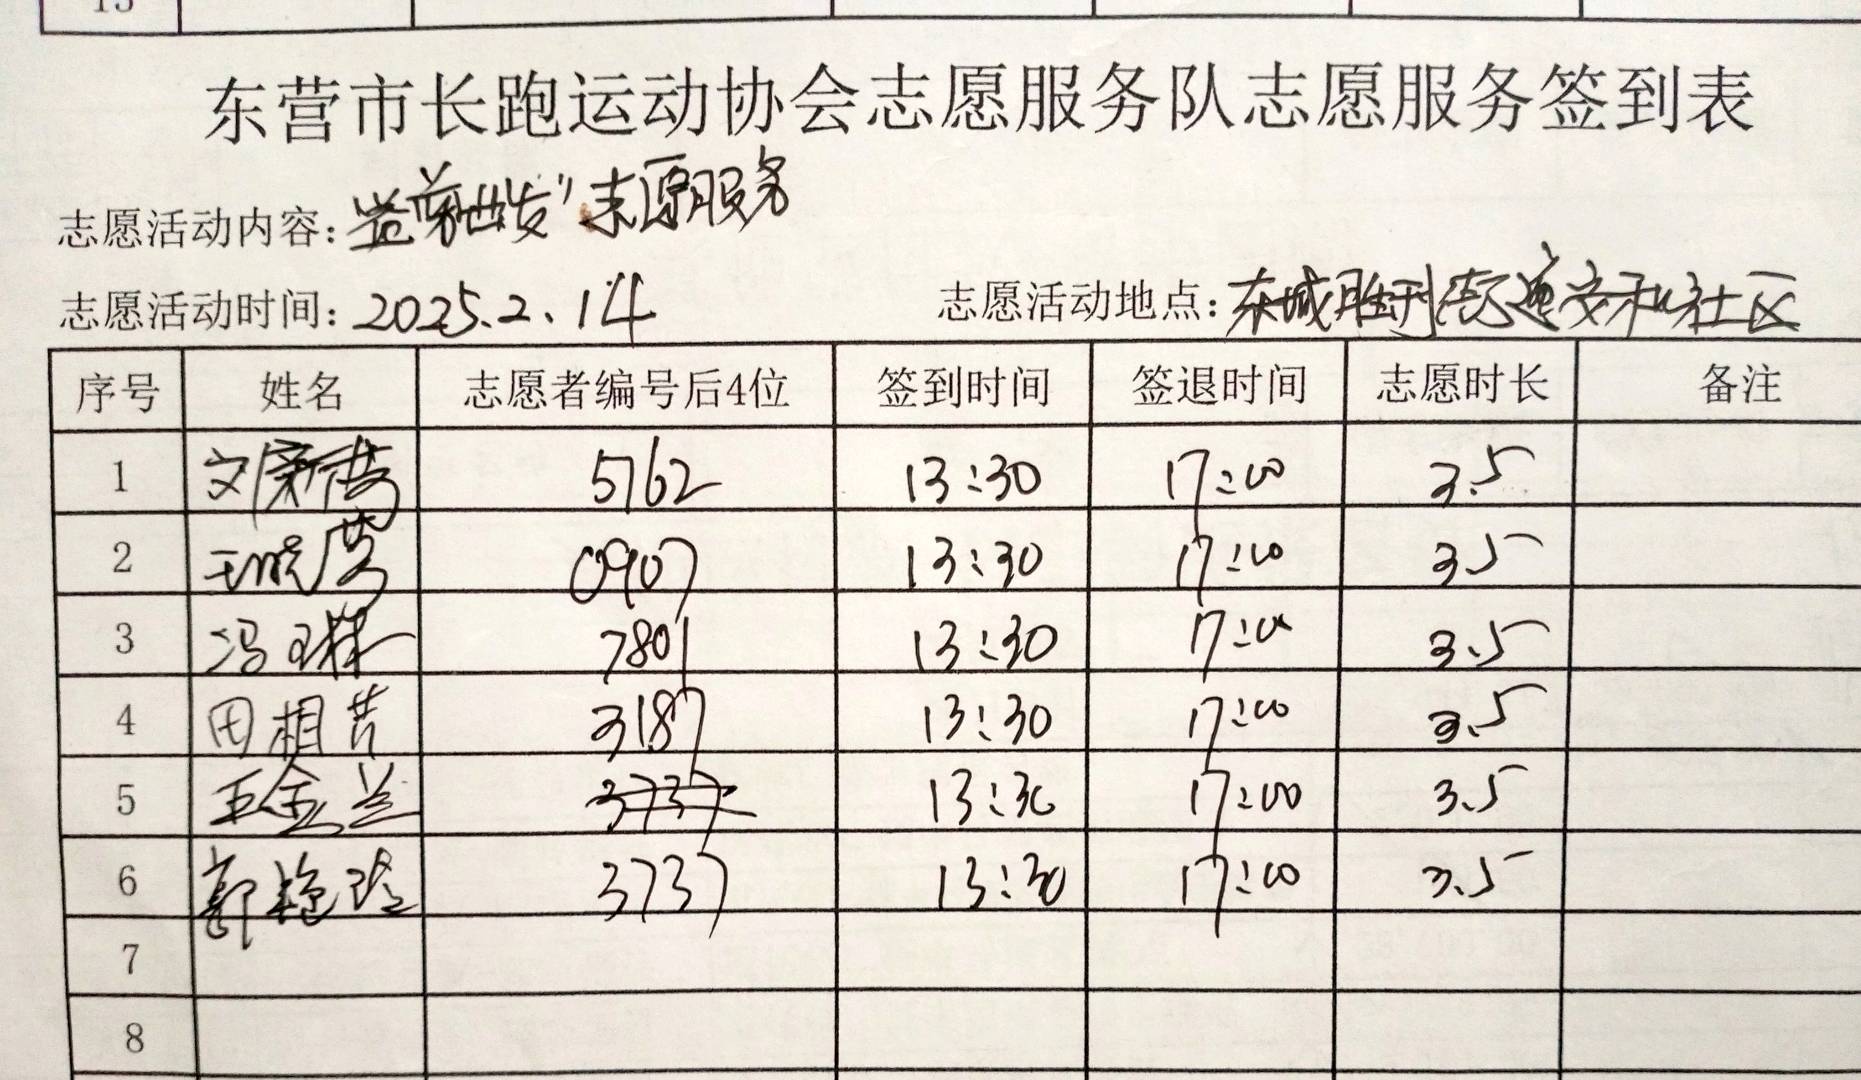 13
东营市长跑运动协会志愿服务队志愿服务签到表
志愿活动内容: 益剪世发"志愿服务
志愿活动时间: 2025.2.14 志愿活动地点: 东城胜利街道安和社区
序号 姓名 志愿者编号后4位 签到时间 签退时间 志愿时长 备注
1 5762 13:30 17:00 3.5
2 王晓芳 0907 13:30 17:00 3.5
3 冯 7801 13:30 17:00 3.5
4 田相芳 3187 13:30 17:00 3.5
5 王金兰 3737 13:30 17:00 3.5
6 郭艳玲 3737 13:30 17:00 3.5
7
8